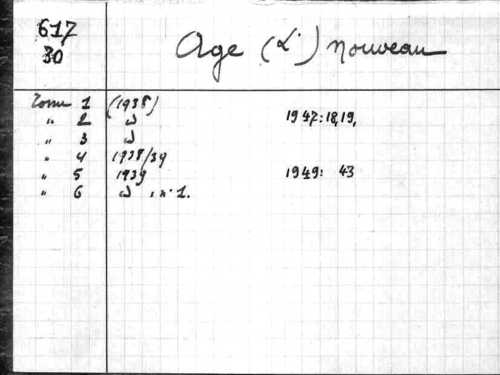 617
30
Age (L') Nouveau
Tome 1 (1938)
" 2 " 1947: 18, 19,
" 3 "
" 4 1938/39
" 5 1939 1949: 43
" 6 " , n° 1.